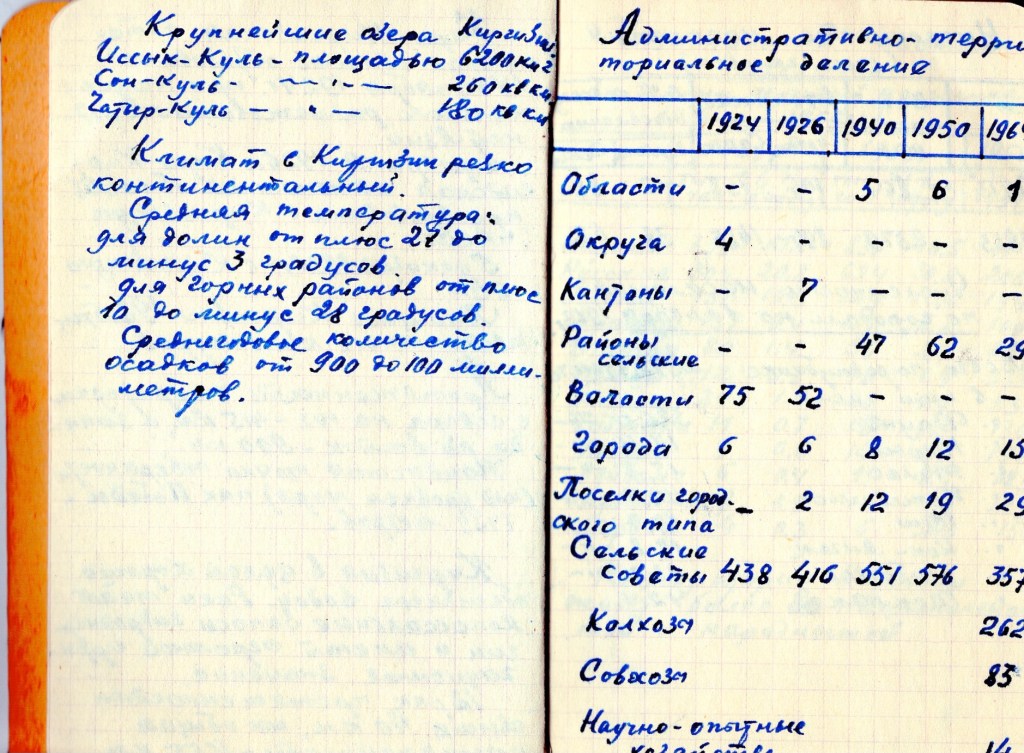 Крупнейшие озера Киргизии
Иссык-Куль - площадью 6200 км²
Сон-Куль - —"— 260 кв км
Чатыр-Куль — " — 180 кв км
Климат в Киргизии резко
континентальный.
Средняя температура:
для долин от плюс 27 до
минус 3 градусов
для горных районов от плюс
10 до минус 28 градусов.
Среднегодовое количество
осадков от 900 до 100 милли-
метров.
Административно-терри
ториальное деление
1924 1926 1940 1950 196
Области - - 5 6 1
Округа 4 - - - 
Кантоны - 7 - - -
Районы
сельские - - 47 62 29
Валасти 75 52 - - -
Города 6 6 8 12 15
Поселки город. - 2 12 19 29
ского типа
Сельские
Советы 438 416 551 576 357
Калхозы 262
Совхозы 85
Научно-опытные
хозяйства 14